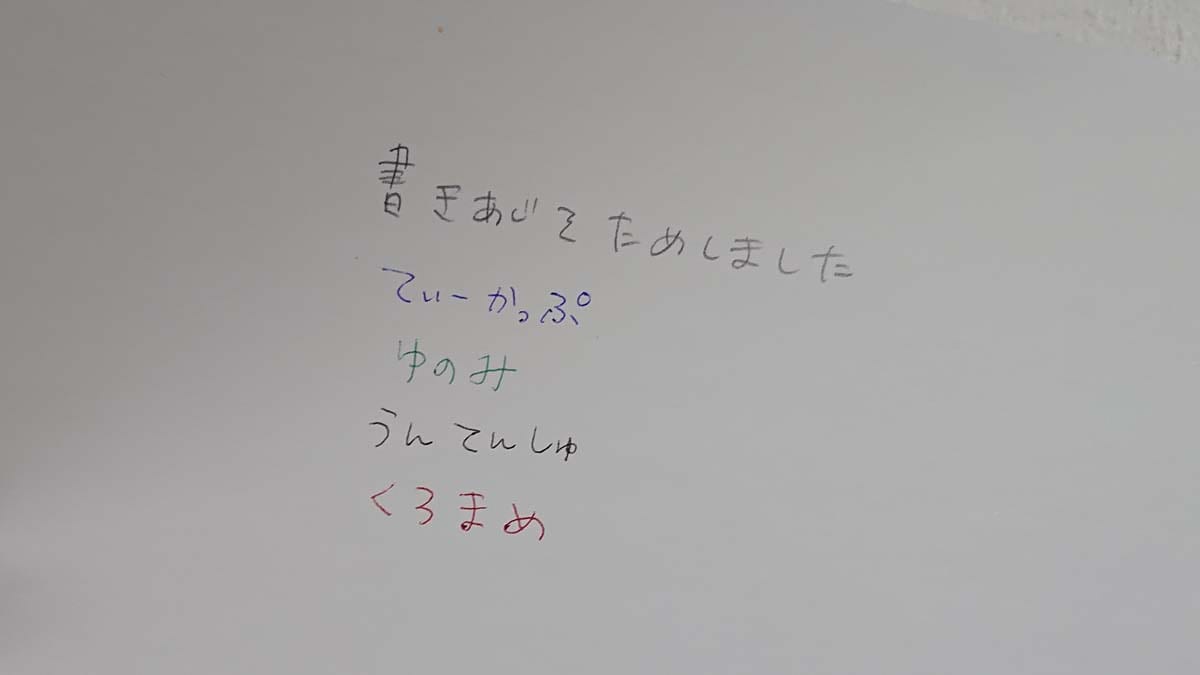 書きあじをためしました
てぃーかっぷ
ゆのみ
うんてんしゅ
くろまめ